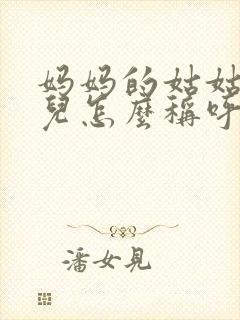 妈妈的姑姑
兒怎麼稱呼
潘女見